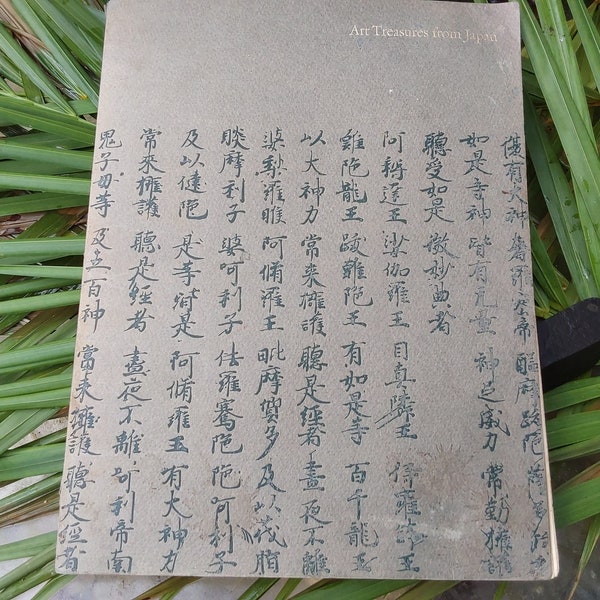 Art Treasures from Japan
有大神 帝 醯摩跋陀
如是等神 皆有无量 神足威力 常勤擁護
聽受如是 微妙典者
阿耨達王 娑伽羅王 目真隣王 羅鉢王
難陀龍王 跋難陀王 有如是等 百千龍王
以大神力 常来擁護 聽是經者 晝夜不離
婆梨羅睺 阿脩羅王 毗摩質多 及以茂脂
睒摩利子 婆呵利子 佉羅騫陀 陀阿利子
及以揵陀 是等皆是 阿脩羅王 有大神力
常来擁護 聽是經者 晝夜不離 訶利帝南
鬼子母等 及五百神 常来擁護 聽是經者